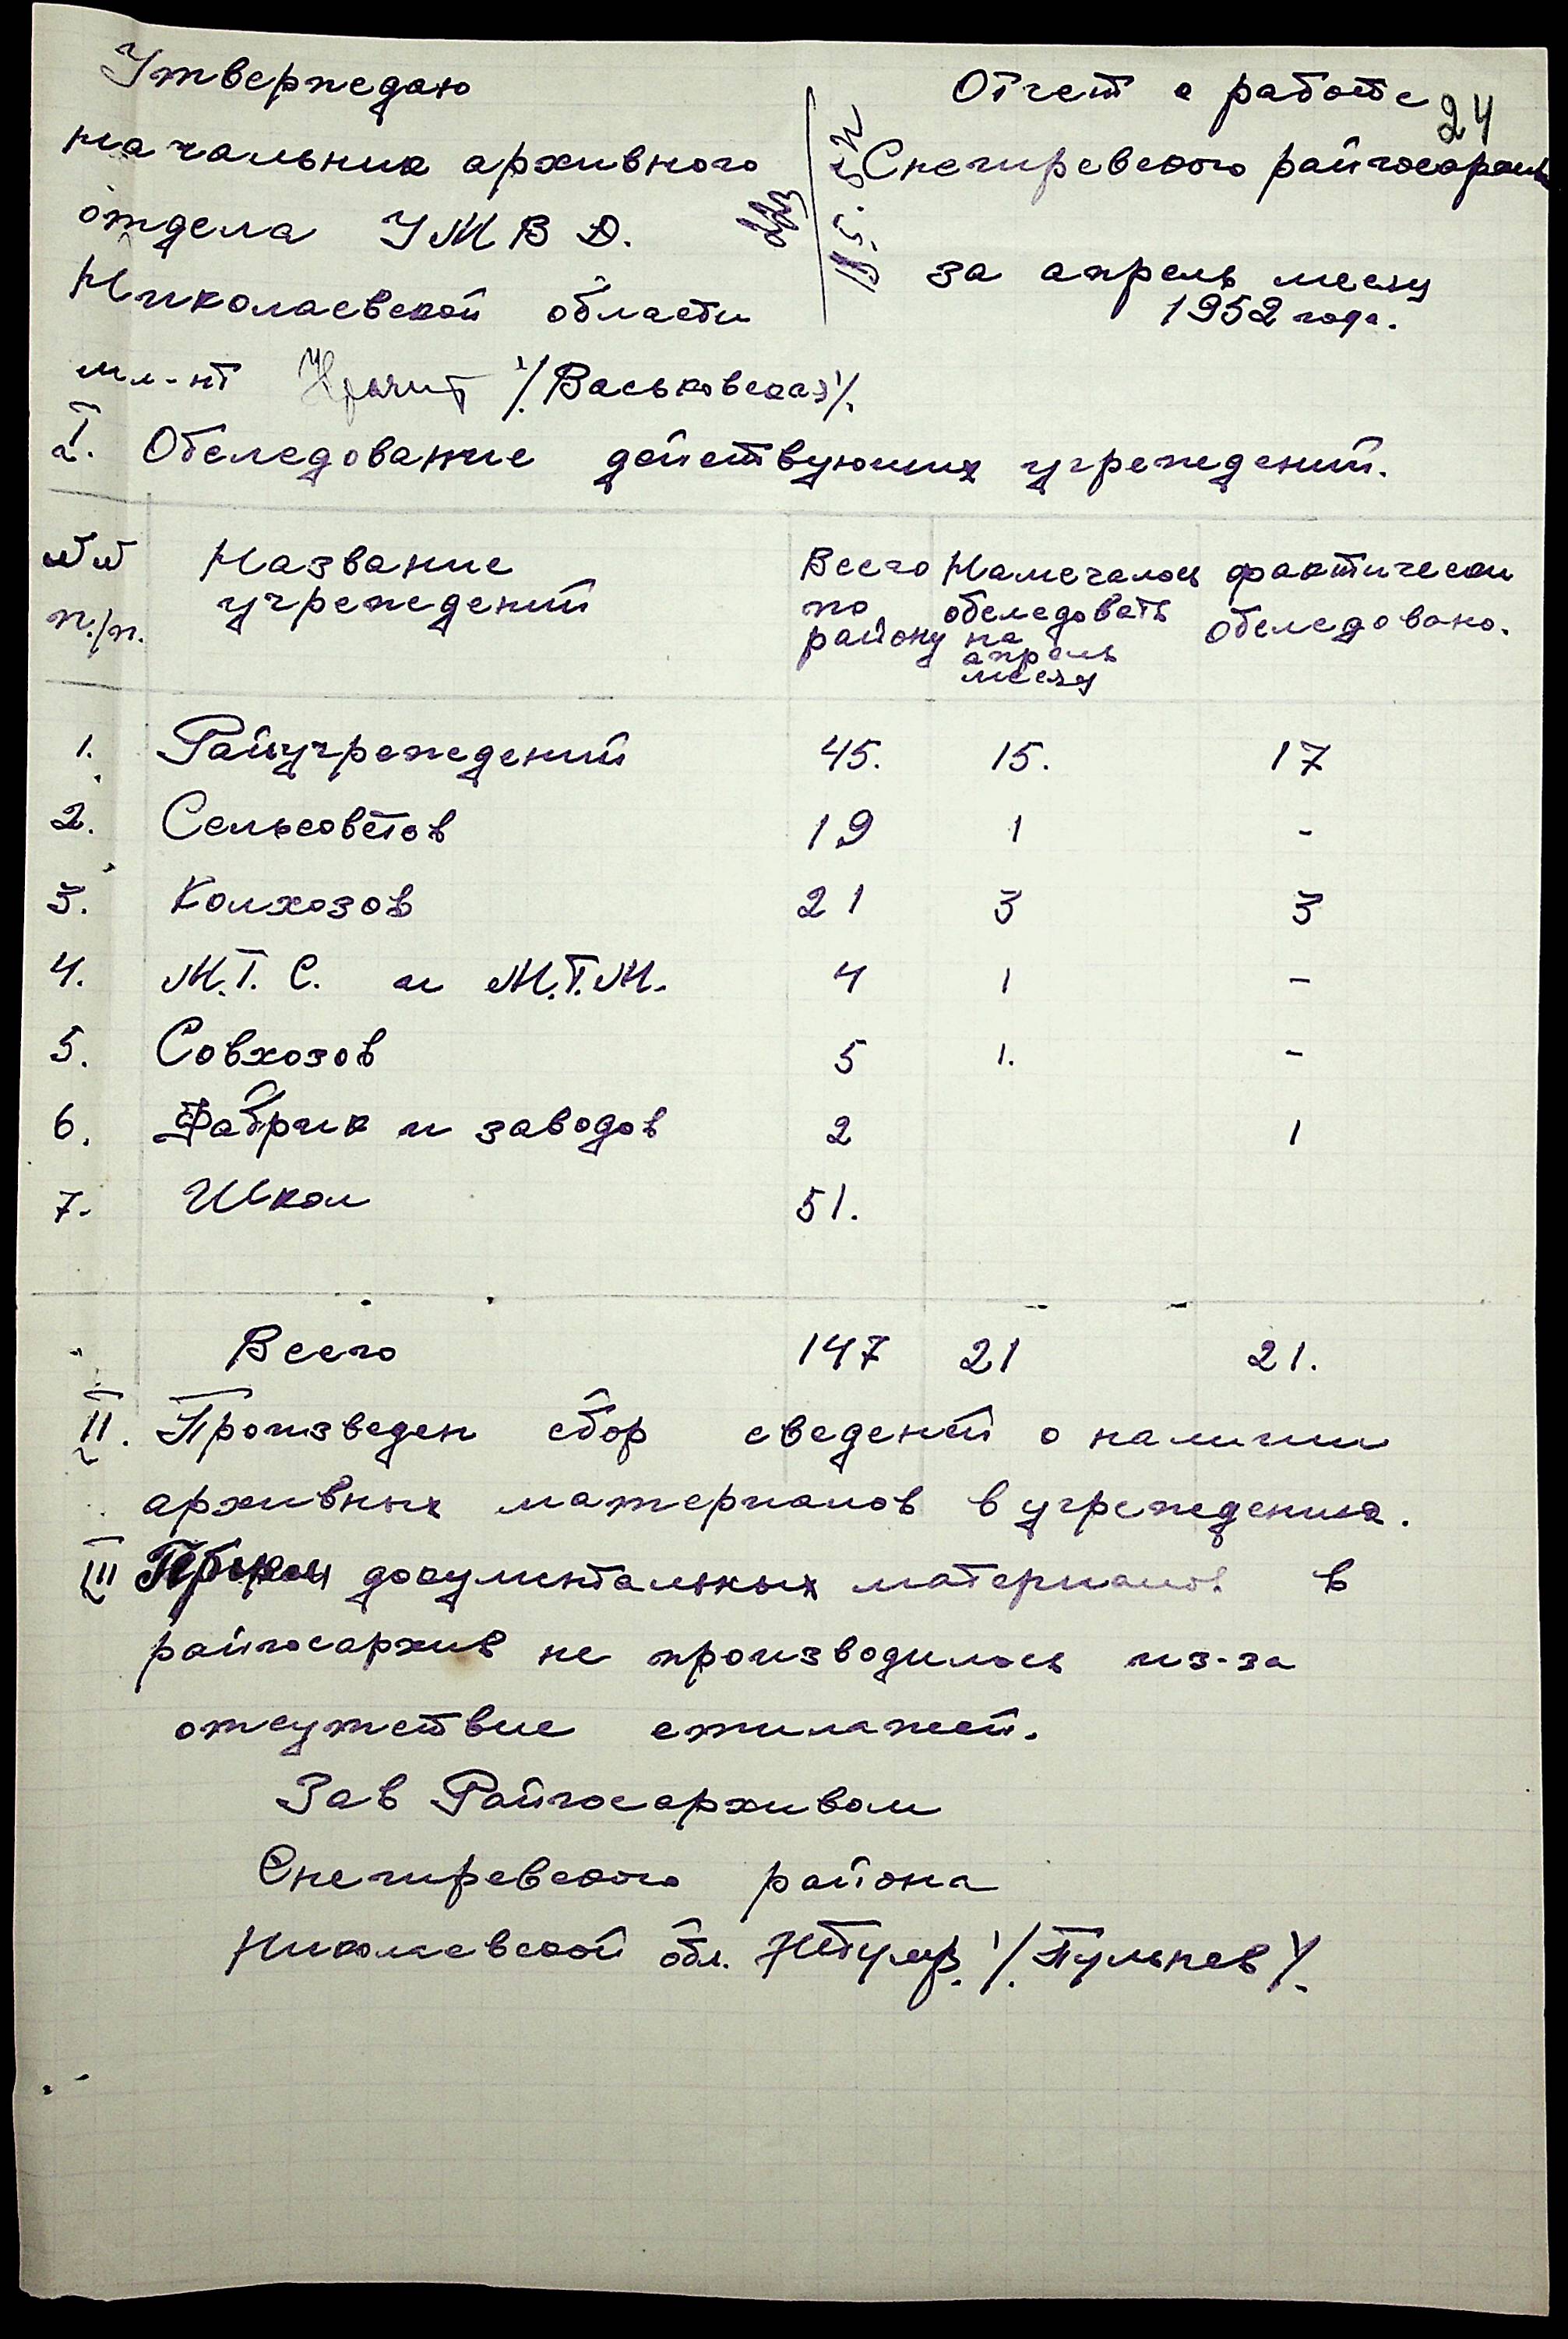 Утверждаю
начальник архивного
отдела УМВД.
Николаевской области
мл-нт /Васьковская/.
Отчет о работе
24
Снегиревского райгосархива
за апрель месяц
1952 года.
I. Обследование действующих учреждений.
№№ п./п. Название учреждений Всего по району Намечалось обследовать на апрель месяц фактически обследовано.
1. Райучреждений 45. 15. 17
2. Сельсоветов 19 1 -
3. Колхозов 21 3 3
4. М.Т.С. и М.Т.М. 4 1 -
5. Совхозов 5 1. -
6. Фабрик и заводов 2 1
7. Школ 51.
Всего 147 21 21.
II. Произведен сбор сведений о наличии
архивных материалов в учреждениях.
III документальных материалов в
райгосархив не производилось из-за
отсутствие стилажей.
Зав Райгосархивом
Снегиревского района
Николаевской обл. /Пульнев/.